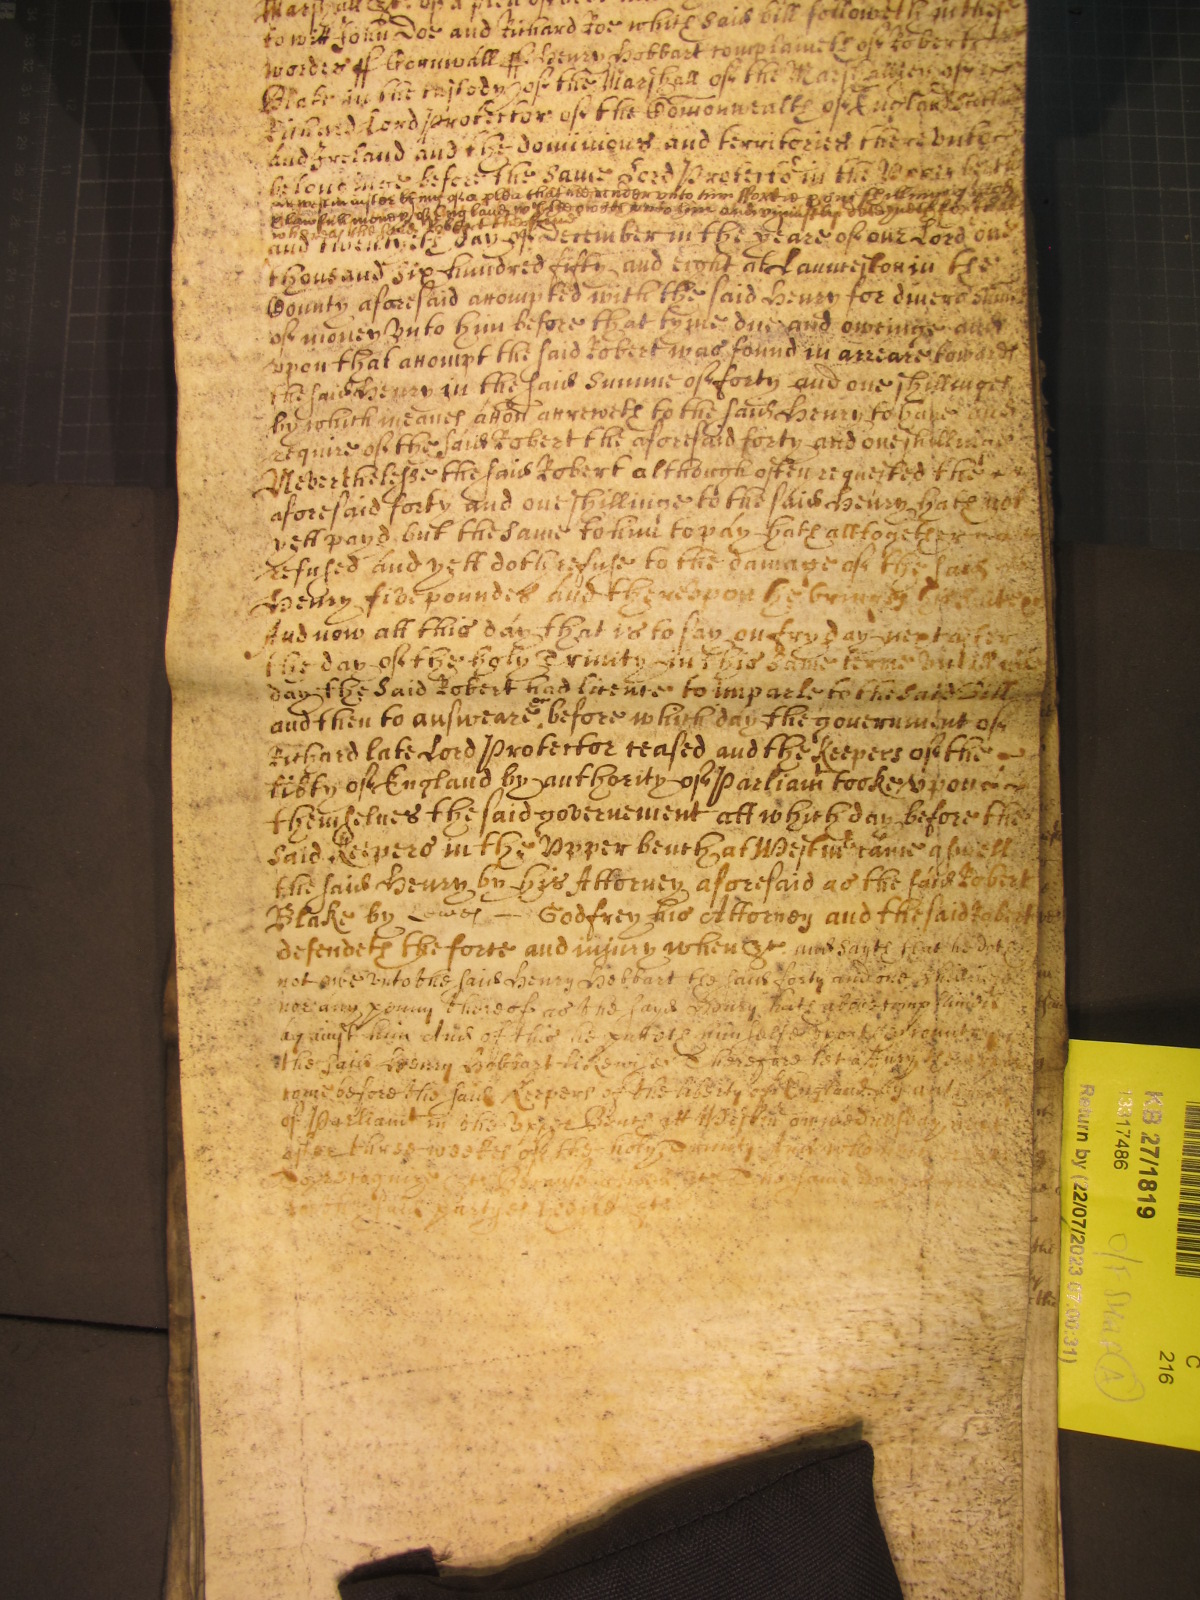 Marshall &c of a plea of debt
to witt John Doe and Richard Roe which said bill followeth in these
wordes ss Cornwall ss Henry Hobbart complaineth of Robert
Blake in the custody of the Marshall of the Marshalsey of
Richard Lord Protector of the Comonwealth of England Scotland
And Ireland and the dominions and territories thereunto
belonginge before the same Lord Protector in the Upper bench
at Westminster being of a plea that he render unto him fortie & one shillings of
lawfull money of England which he oweth unto him and uniustly deteyneth for that
whereas the said Robert the
and twentieth day of December in the yeare of our Lord one
thousand six hundred fifty and eight at Launceston in the
County aforesaid accompted with the said Henry for divers summes
of money unto him before that tyme due and oweinge and
upon that accompt the said Robert was found in arreare towards
the said Henry in the said summe of forty and one shillinges
by which meanes accon accreweth to the said Henry to have and
require of the said Robert the aforesaid forty and one shillinge
Neverthelesse the said Robert although often requested the
aforesaid forty and one shillinge to the said Henry hath not
yett payd but the same to him to pay hath alltogether
refused and yett doth refuse to the damage of the said
Henry five poundes And thereupon he bringes his suite
And now att this day that is to say on fryday next after
the day of the holy Trinity in this same terme untill which
day the said Robert had licence to imparle to the said bill
and then to answeare &c before which day the government of
Richard late Lord Protector ceased and the Keepers of the
libty of England by authority of Parliamt tooke upon
themselves the said governement att which day before the
said Keepers in the Upper bench at Westmr came aswell
the said Henry by his Attorney aforesaid as the said Robert
Blake by Lewes Godfrey his Attorney and the said Robert
defendeth the force and injury when &c and sayth that he doth
not owe unto the said Henry Hobbart the said forty and one shillinges
nor any penny thereof as the said Henry hath above complained
against him And of this he putteth himselfe upon the country
the said Henry Hobbart likewise Therefore let a Jury thereupon
come before the said Keepers of the liberty of England by aut
of Parliamt in the Upper Bench att Westmr on wednesday next
after three weekes of the holy Trinity And who
To recognize &c Because aswell &c The same day is given
party &c
KB 27/1819
13317486
Return by (22/07/2023 07:00:31)
C
216